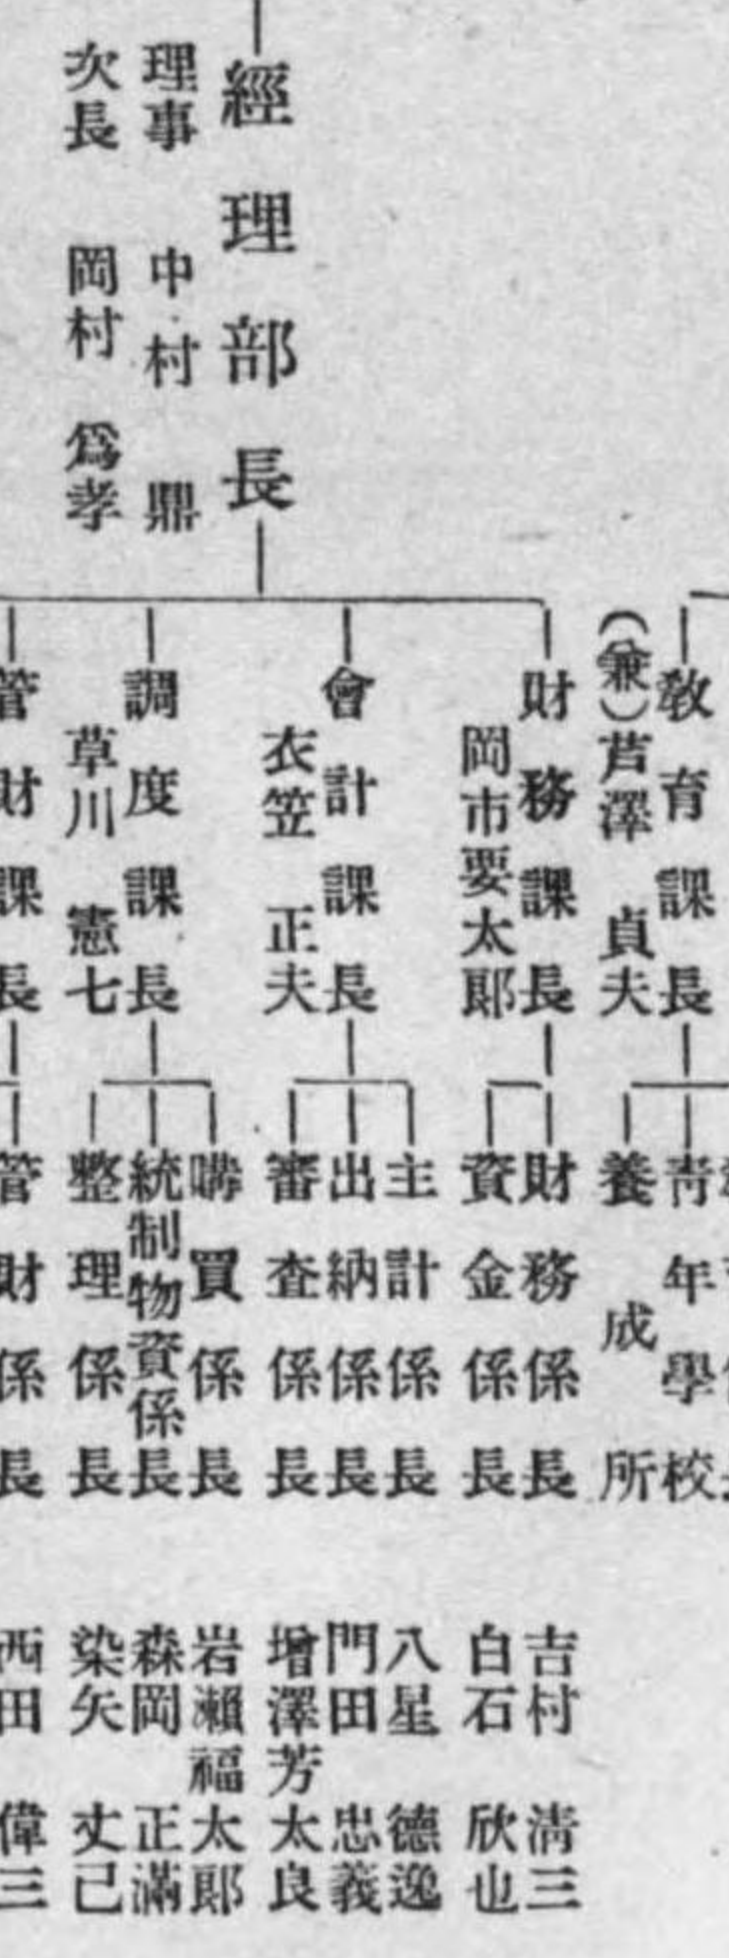 經理部長
理事 中村 鼎
次長 岡村 爲孝
敎育課長
(兼)芦澤 貞夫
靑年學校
養成所
財務課長
岡市要太郞
財務係長 吉村 淸三
資金係長 白石 欣也
會計課長
衣笠 正夫
主計係長 八星 德逸
出納係長 門田 忠義
審査係長 增澤芳太良
調度課長
草川 憲七
購買係長 岩瀨福太郞
統制物資係長 森岡 正滿
整理係長 染矢 丈己
管財課長
管財係長 西田 偉三